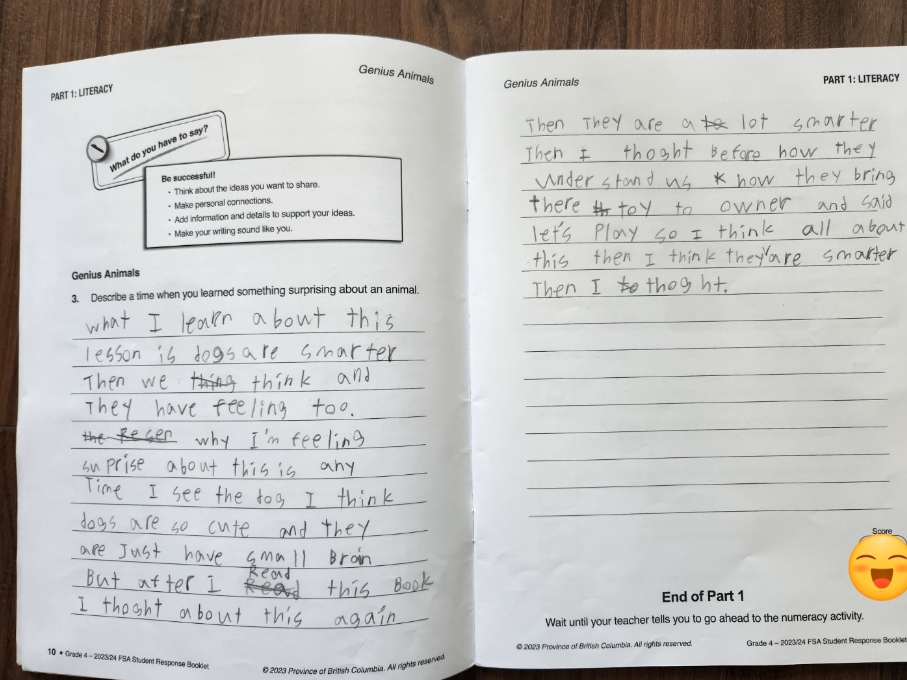 PART 1: LITERACY
Genius Animals
What do you have to say?
Be successful!
• Think about the ideas you want to share.
• Make personal connections.
• Add information and details to support your ideas.
• Make your writing sound like you.
Genius Animals
3. Describe a time when you learned something surprising about an animal.
what I learn about this
lesson is dogs are smarter
Then we thing think and
They have feeling too.
the Resen why I'm feeling
suprise about this is any
Time I see the dog I think
dogs are so cute and they
are Just have small Brain
Read
But after I Read this Book
I thoght about this again
10 • Grade 4 – 2023/24 FSA Student Response Booklet
© 2023 Province of British Columbia. All rights reserved.
Genius Animals
PART 1: LITERACY
Then They are a lot smarter
Then I thoght Before how they
understand us how they bring
there toy to owner and said
let's Play so I think all about
this then I think they're smarter
Then I thoght.
Score
End of Part 1
Wait until your teacher tells you to go ahead to the numeracy activity.
© 2023 Province of British Columbia. All rights reserved.
Grade 4 – 2023/24 FSA Student Response Booklet